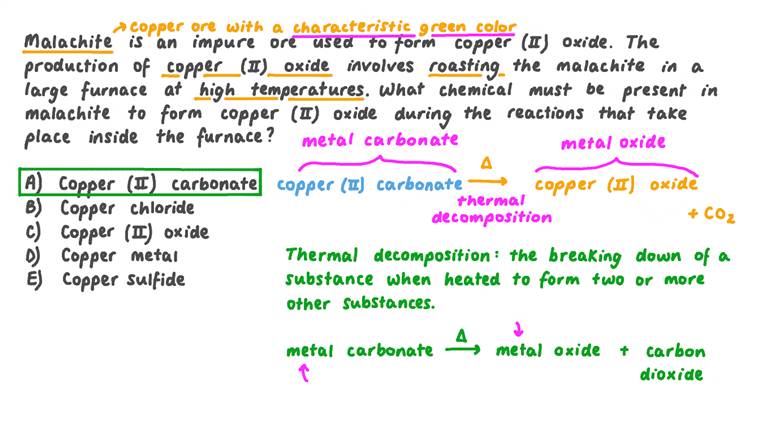 → copper ore with a characteristic green color
Malachite is an impure ore used to form copper (II) oxide. The
production of copper (II) oxide involves roasting the malachite in a
large furnace at high temperatures. What chemical must be present in
malachite to form copper (II) oxide during the reactions that take
place inside the furnace?
metal carbonate metal oxide
A) Copper (II) carbonate
B) Copper chloride
C) Copper (II) oxide
D) Copper metal
E) Copper sulfide
copper (II) carbonate Δ→ copper (II) oxide
thermal
decomposition
+ CO₂
Thermal decomposition: the breaking down of a
substance when heated to form two or more
other substances.
metal carbonate Δ→ metal oxide + carbon
dioxide